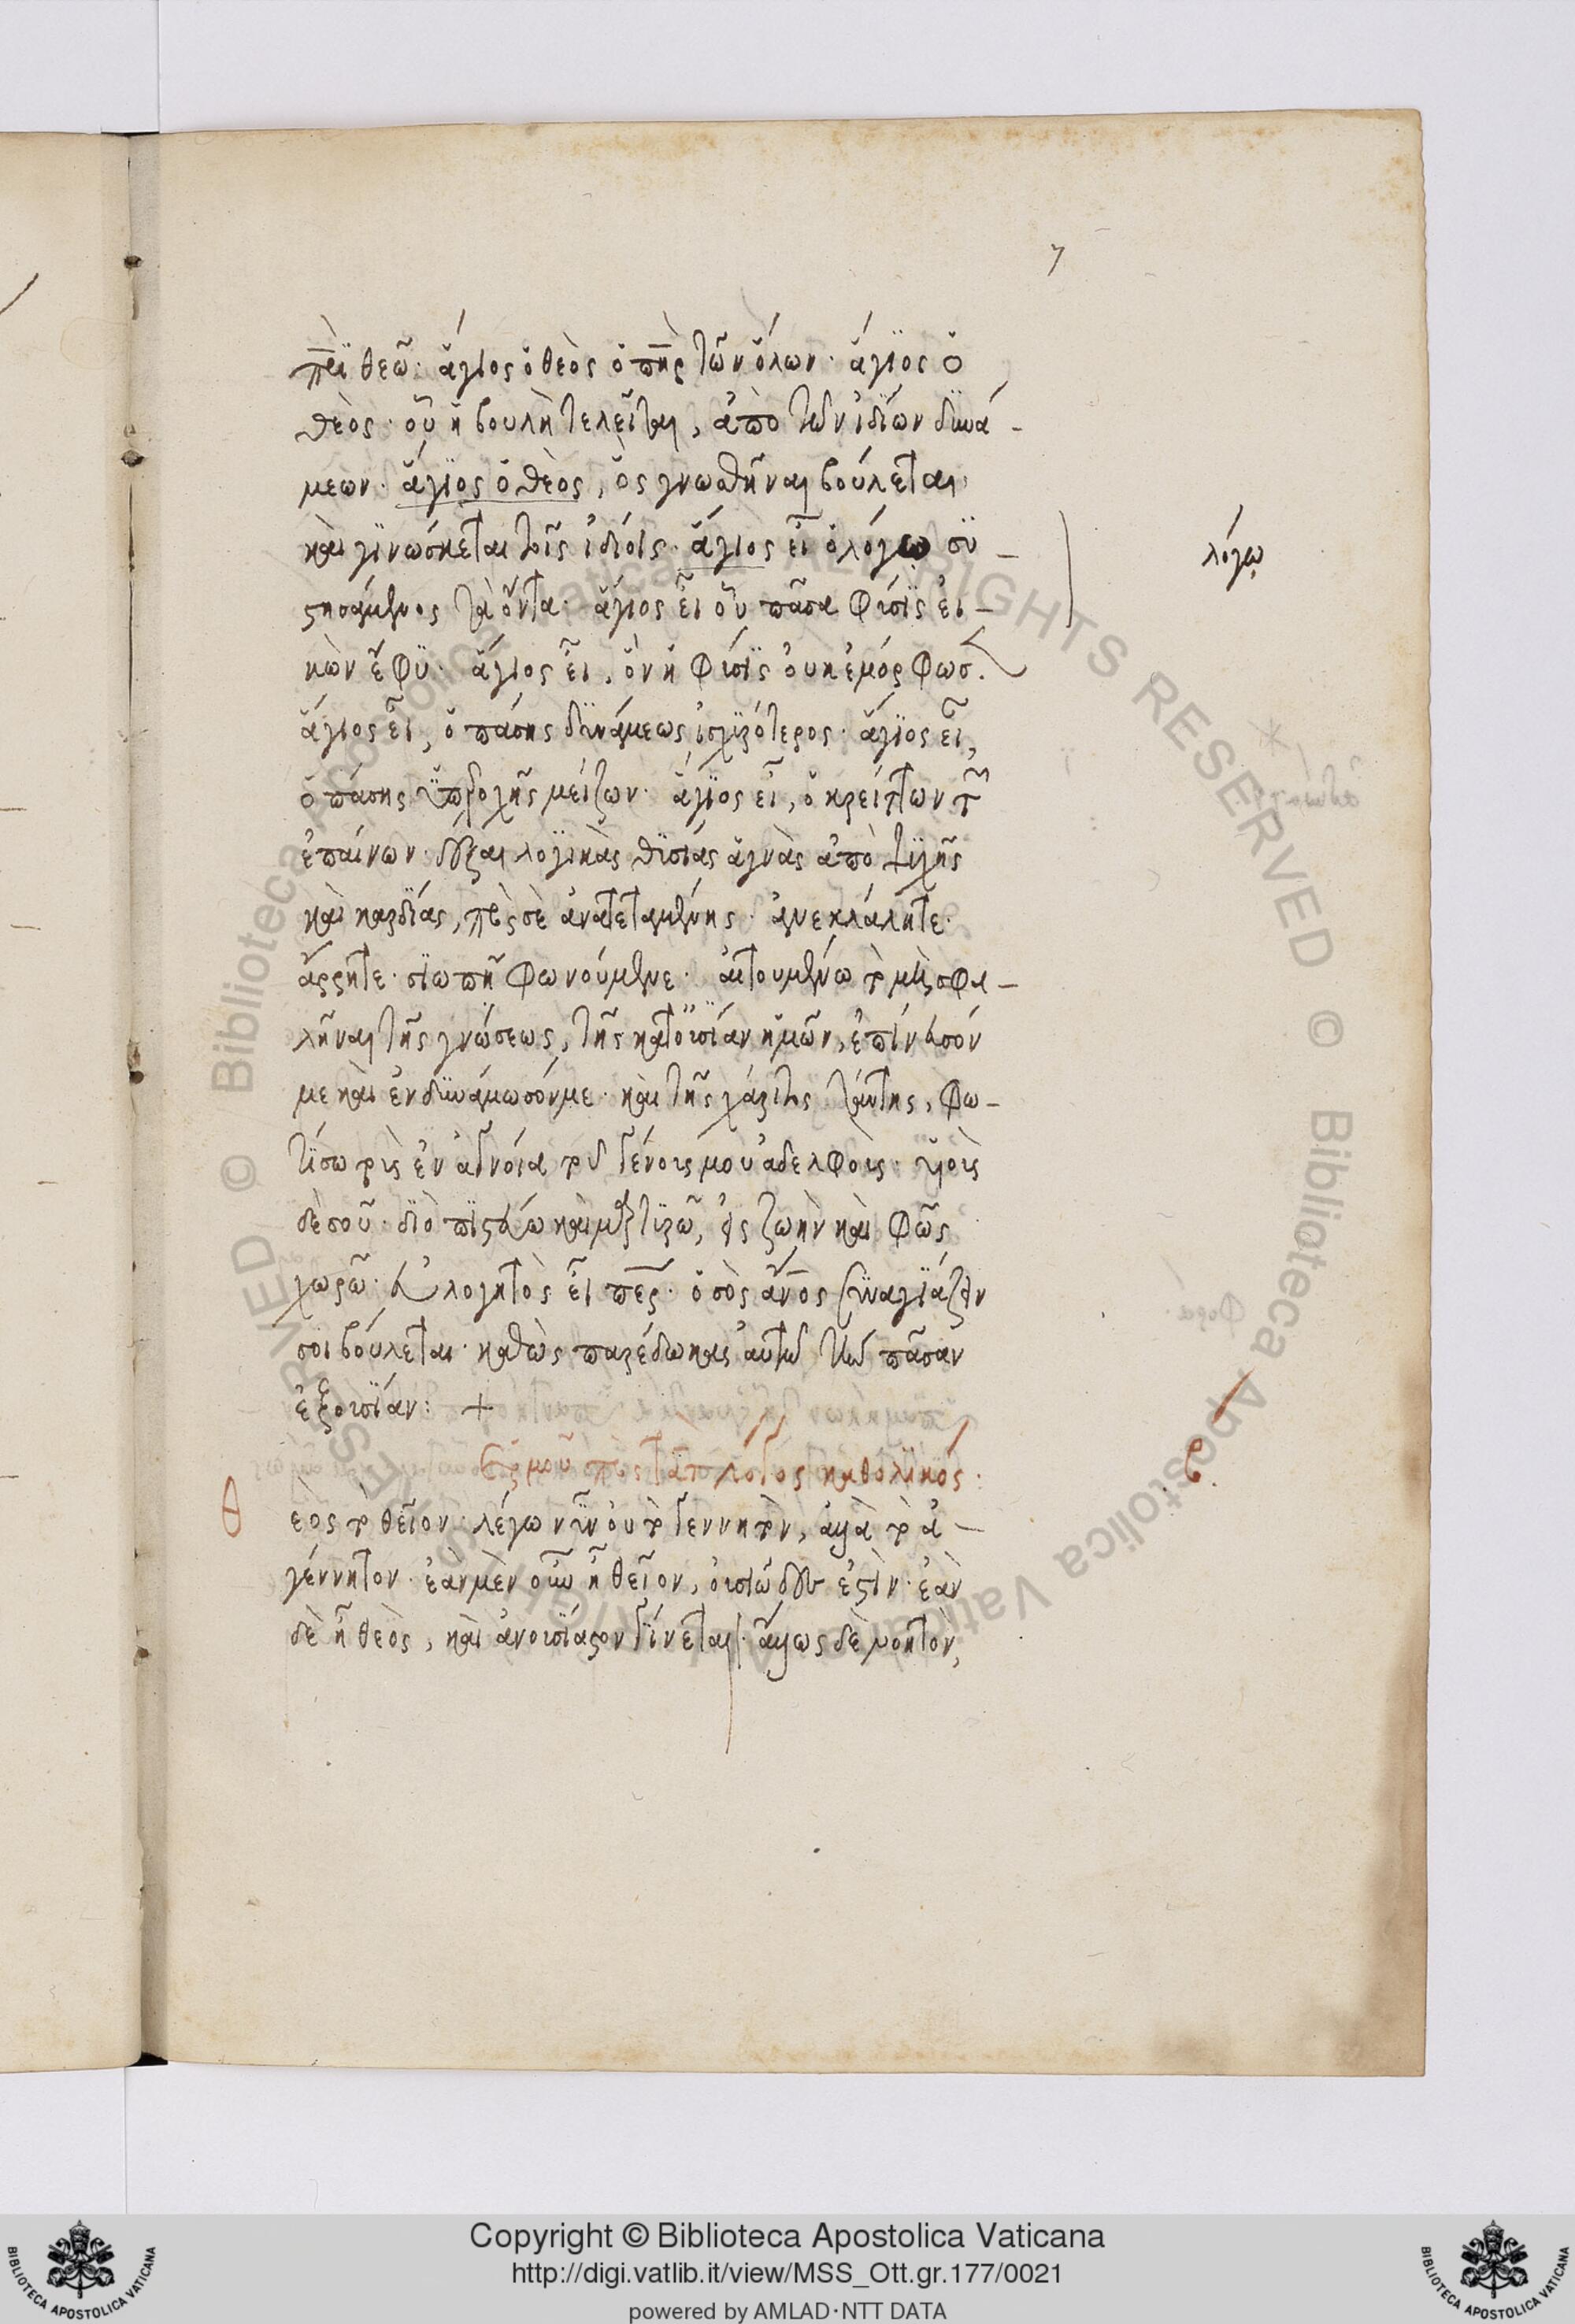 7
πρὶ θεῶ· ἅγιος ὁ θεὸς ὁ πηρ τῶν ὅλων· ἅγϊος ὁ
θεὸς· οὗ ἡ βουλὴ τελεῖται, ἀπὸ τῶν ἰδίων δϋνά-
μεων· ἅγϊος ὁ θεὸς, ὃς γνωσθῆναι βούλεται,
καὶ γϊνώσκεται τοῖς ἰδίοις· ἅγιος εἶ ὁ λόγω συ-
στησάμενος τὰ ὄντα· ἅγιος εἶ οὗ πᾶσα φύσϊς εἰ-
κὼν ἔφϋ· ἅγιος εἶ, ὃν ἡ φύσϊς οὐκ ἐμόρφωσ.
ἅγιος εἶ, ὁ πάσης δϋνάμεως ἰσχϋρότερος· ἅγϊος εἶ,
ὁ πάσης ὑπεροχῆς μείζων· ἅγϊος εἶ, ὁ κρείττων τ
ἐπαίνων· δέξαι λογϊκὰς θϋσίας ἁγνὰς ἀπὸ ψϋχῆς
καὶ καρδίας, πρὸς σὲ ἀνατεταμένης· ἀνεκλάλητε·
ἄρρητε· σϊωπῆ φωνούμενε· αἰτουμένω τὸ μὴ σφα-
λῆναι τῆς γνώσεως, τῆς κατ οὐσίαν ἡμῶν, ἐπίνευσόν
με καὶ ἐνδϋνάμωσόν με· καὶ τῆς χάριτος ταύτης, φω-
τίσω τοὺς ἐν ἀγνοία τοῦ γένους μου ἀδελφοὺς· υἱοὺς
δὲ σοῦ· δϊὸ πϊστεύω καὶ μαρτϋρῶ, εἰς ζωὴν καὶ φῶς
χωρῶ· εὐλογητὸς εἶ περ· ὁ σὸς ἄνος σϋναγϊάζειν
σοι βούλεται· καθὼς παρέδωκας αὐτῶ τὴν πᾶσαν
ἐξουσΐαν: +
Ἑρμοῦ πρὸς τὰτ λόγος καθολϊκός:
β.
Θεὸς τὸ θεῖον· λέγω νῦν οὐ τὸ γεννητὸν, ἀλλὰ τὸ ἀ-
γέννητον· ἐὰν μὲν οὖν ἦ θεῖον, οὐσιῶδες ἐστὶν· ἐὰν
δὲ ἦ θεὸς, καὶ ἀνουσΐαστον γίνεται· ἄλλως δὲ νοητὸν,
λόγω
Copyright © Biblioteca Apostolica Vaticana
http://digi.vatlib.it/view/MSS_Ott.gr.177/0021
powered by AMLAD·NTT DATA
BIBLIOTECA APOSTOLICA VATICANA
BIBLIOTECA APOSTOLICA VATICANA